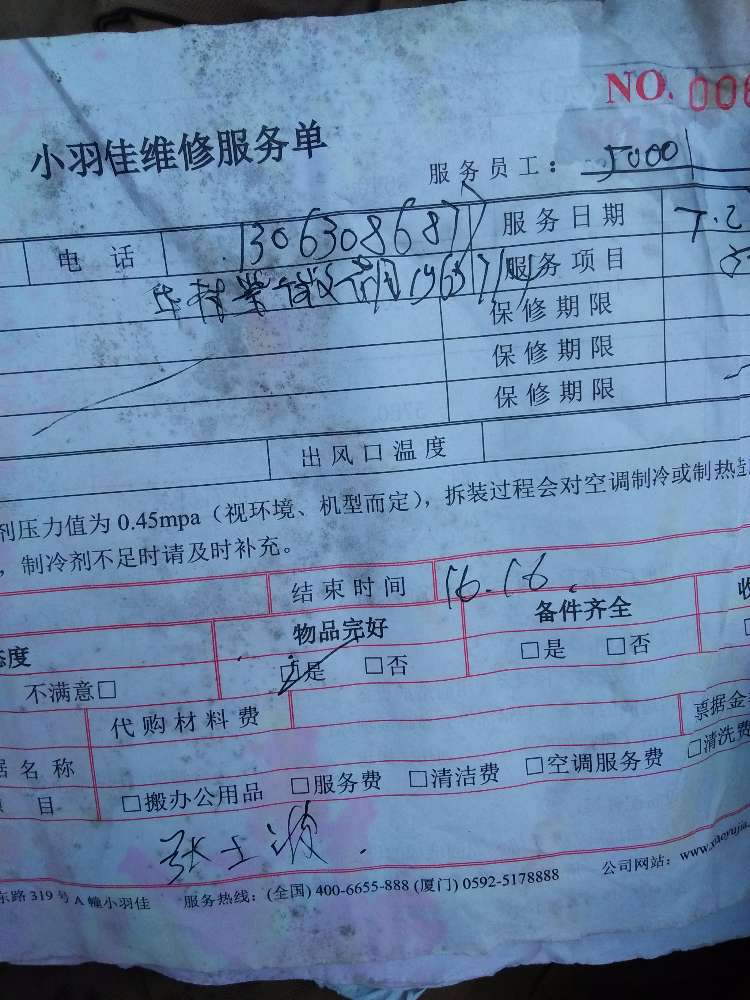 NO. 006
小羽佳维修服务单
服务员工：5000
电话 13063086877 服务日期 7.2
服务项目
保修期限
保修期限
保修期限
出风口温度
剂压力值为 0.45mpa（视环境、机型而定），拆装过程会对空调制冷或制热
，制冷剂不足时请及时补充。
结束时间 16.16
态度 物品完好 备件齐全 收
不满意□ □是 □否 □是 □否
代购材料费 票据金
据名称
项目 □搬办公用品 □服务费 □清洁费 □空调服务费 □清洗费
东路 319 号 A 幢小羽佳 服务热线：(全国) 400-6655-888 (厦门) 0592-5178888 公司网站：www.xiaoyujia